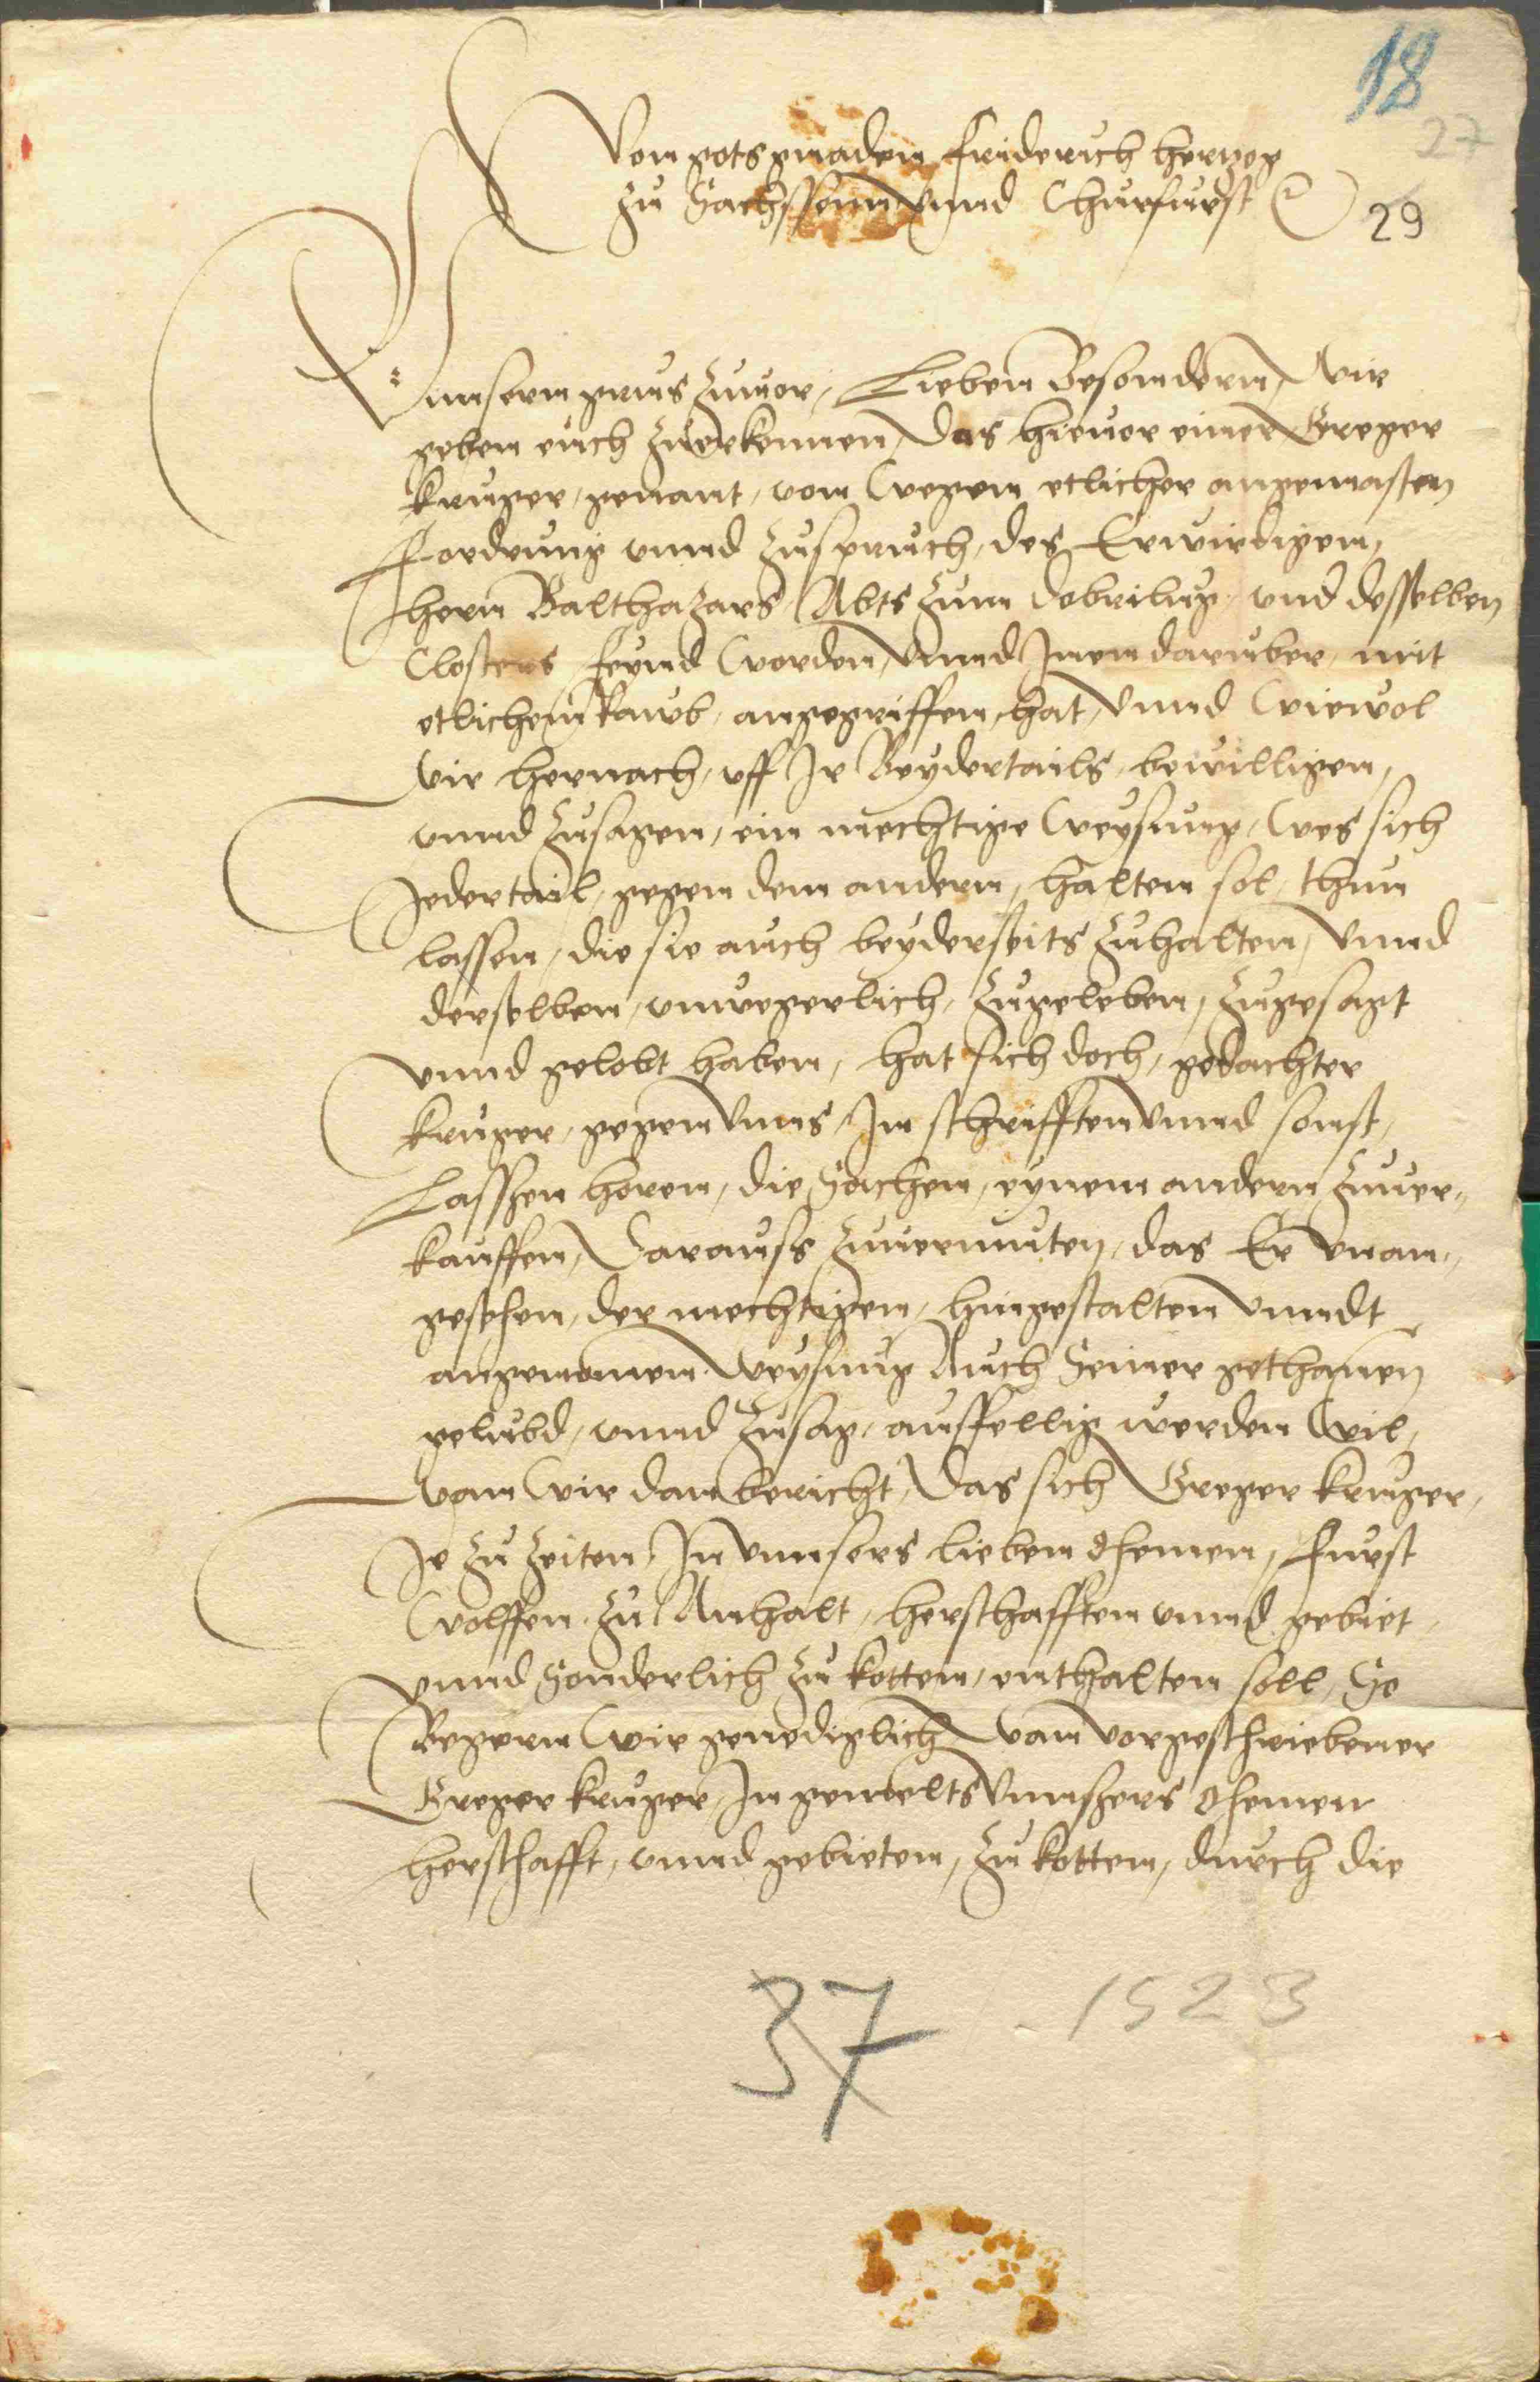 18
27
Von gots gnaden Friderich hertzog
zu Sachssenn vnnd Churfurst etc
29
Vnnsern grus zuuor, Lieben Besondern, Wir
geben euch zuerkennen, das hieuor einer Greger
kruger, genant, von wegen etlicher angemasten
Forderung vnnd zuspruch, des Erwirdigen,
hern Balthazars Abts zum dobrilug, vnd desselben
Closters feynd worden, vnnd Inen daruber, mit
etlichem rawb, angegriffen, hat, vnnd wiewol
wir hernach, vff Ir Beydertails, bewilligen,
vnnd zusagen, ein mechtige weysung, wes sich
Jedertail, gegen dem andern, halten sol, thun
lassen, die sie auch beyderseits zuhalten, vnnd
derselben, vnwegerlich, zugeleben, zugesagt
vnnd gelobt haben, hat sich doch, gedachter
kruger, gegen vnns, In schrifften vnnd sonst,
Lasszen horen, die Sachen, eynem andern zuuer„
kauffen, Darauss zuuermuten, das Er vnan„
gesehen, der mechtigen, hingestalten vnndt
angenomen weysung Auch Seiner gethanen
gelubd, vnnd zusag, ausfellig werden wil,
wan wir dan bericht, das sich Greger kruger,
Je zu zeiten, In vnnsers lieben ohemen, Furst
Wolffen zu Anhalt, herschafften vnnd gebiet
vnnd Sonderlich zu kotten, enthalten soll, So
Begern wir genediglich, wan vorgeschriebener
Greger kruger, In gemelts vnnszers Ohemen
herschafft, vnnd gebieten, zu kotten, durch die
37
1523